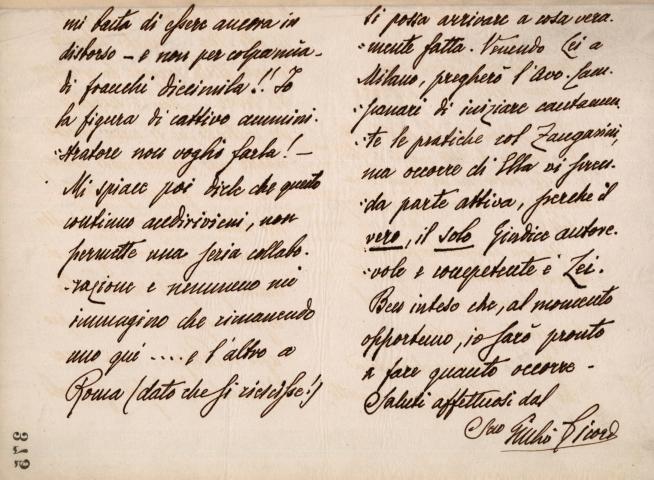 mi basta di essere ancora in
disborso - e non per colpa mia -
di franchi diecimila!! Io
la figura di cattivo ammini-
-stratore non voglio farla! -
Mi spiace poi dirle che questo
continuo andirivieni, non
permette una seria collabo-
-razione e nemmeno mi
immagino che rimanendo
uno qui .... e l'altro a
Roma (dato che si riescisse!)
si possa arrivare a cosa vera-
-mente fatta. Venendo Lei a
Milano, pregherò l'Avo. Cam-
-panari di iniziare cautamen-
-te le pratiche col Zangarini,
ma occorre di Ella vi pren-
-da parte attiva, perchè il
vero, il solo Giudice autore-
-vole e competente è Lei.
Ben inteso che, al momento
opportuno, io sarò pronto
a fare quanto occorre -
Saluti affettuosi dal
Suo Giulio Ricordi
312